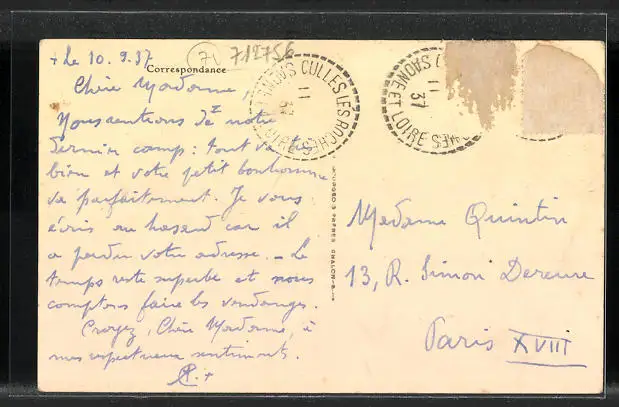 + Le 10.9.37
71
712756
Correspondance
Chère Madame
Nous rentrons de notre
dernier camp : tout va très
bien et votre petit bonhomme
va parfaitement. Je vous
écris au hasard car il
a perdu votre adresse. - Le
temps reste superbe et nous
comptons faire les vendanges.
Croyez, Chère Madame, à
mes respectueux sentiments.
CULLES LES ROCHES
11
37
SAONE ET LOIRE
11
37
BOURGEOIS FRERES CHALON-S-S
Madame Quintin
13, R. Simon Dereure
Paris XVIII